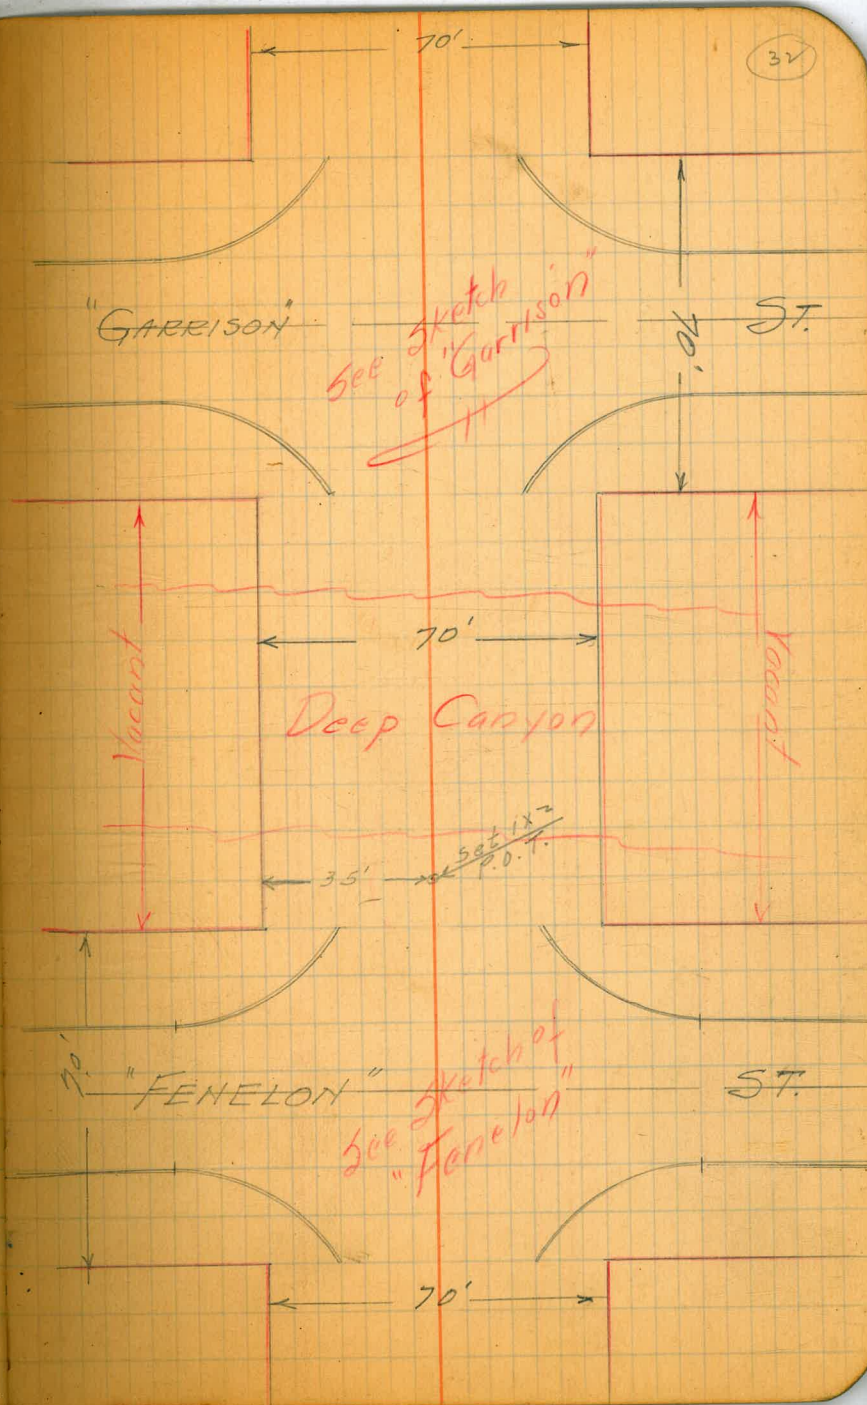 70'
32
"GARRISON" ST.
See Sketch
of "Garrison"
70'
Vacant
70'
Vacant
Deep Canyon
Set 1x2
P.O.T.
35'
70'
"FENELON" ST.
See Sketch of
"Fenelon"
70'